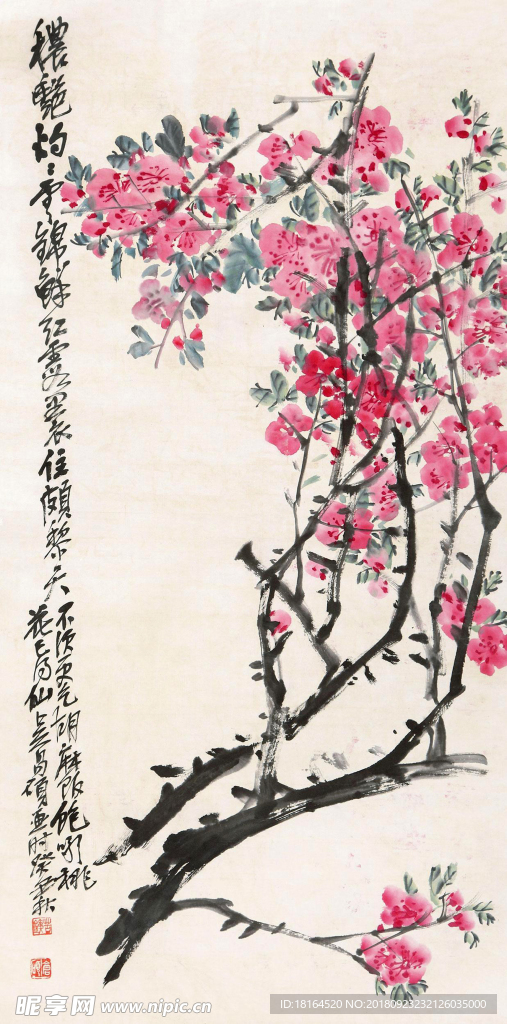 穠艷灼灼雲錦鮮紅霞裹住頗黎天
不須更乞胡麻飯飽桃
花已得仙吳昌碩畫時癸丑秋
昵享网 www.nipic.cn
ID:18164520 NO:20180923232126035000